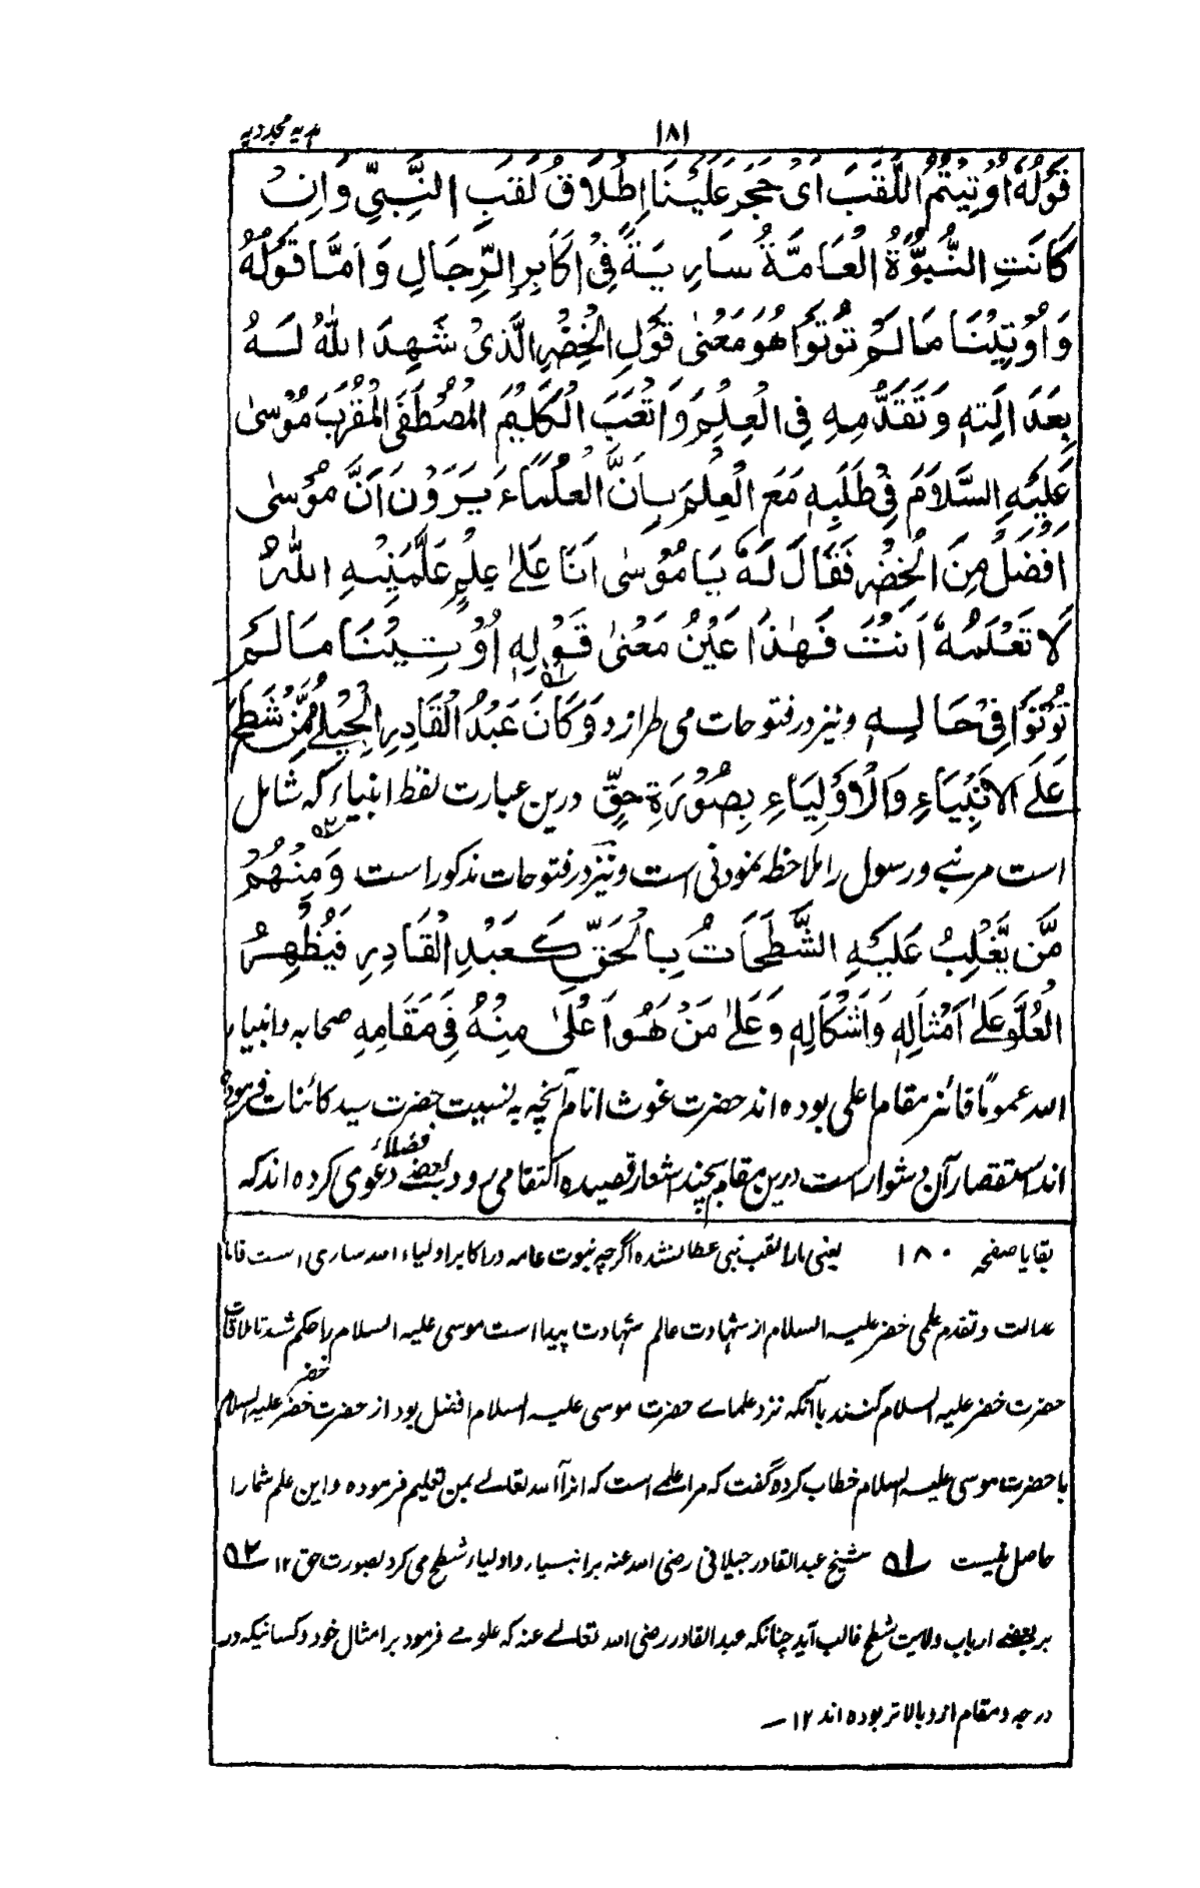 ہدیہ مجددیہ
۱۸۱
قَوْلُهٗ اُوْتِيْتُمُ اللَّقَبَ اَیْ حَجَرَ عَلَيْنَا اِطْلَاقُ لَقَبِ النَّبِيِّ وَاِنْ
كَانَتِ النُّبُوَّةُ الْعَامَّةُ سَارِيَةً فِیْ اَكَابِرِ الرِّجَالِ وَاَمَّا قَوْلُهٗ
وَاُوْتِيْنَا مَا لَمْ تُوْتَوْا هُوَ مَعْنٰی قَوْلِ الْخِضْرِ الَّذِیْ شَهِدَ اللّٰهُ لَهٗ
بِعَدَالَتِهٖ وَتَقَدُّمِهٖ فِی الْعِلْمِ وَاَتْعَبَ الْكَلِيْمَ الْمُصْطَفَی الْمُقَرَّبَ مُوْسٰی
عَلَيْهِ السَّلَامُ فِیْ طَلَبِهٖ مَعَ الْعِلْمِ بِاَنَّ الْعُلَمَاءَ يَرَوْنَ اَنَّ مُوْسٰی
اَفْضَلُ مِنَ الْخِضْرِ فَقَالَ لَهٗ يَا مُوْسٰی اَنَا عَلٰی عِلْمٍ عَلَّمَنِيْهِ اللّٰهُ
لَا تَعْلَمُهٗ اَنْتَ فَهٰذَا عَيْنُ مَعْنٰی قَوْلِهٖ اُوْتِيْنَا مَا لَمْ
تُوْتَوْا فِیْ حَالِهٖ ونیز در فتوحات می طرازد وَكَانَ ۵۱ عَبْدُ الْقَادِرِ الْجِيْلِیُّ مِمَّنْ شَطَحَ
عَلَی الْاَنْبِيَاءِ وَالْاَوْلِيَاءِ بِصُوْرَةِ حَقٍّ درین عبارت لفظ انبیاء کہ شامل
است مر نبی و رسول را ملاحظہ نمودنی است ونیز در فتوحات مذکور است وَمِنْهُمْ ۵۲
مَّنْ يَّغْلِبُ عَلَيْهِ الشَّطَحَاتُ بِالْحَقِّ كَعَبْدِ الْقَادِرِ فَيُظْهِرُ
الْعُلُوَّ عَلٰی اَمْثَالِهٖ وَاَشْكَالِهٖ وَعَلٰی مَنْ هُوَ اَعْلٰی مِنْهُ فِیْ مَقَامِهٖ صحابہ و انبیاء
اللہ عموماً فائز مقام اعلی بوده اند حضرت غوث انام آنچہ بہ نسبت حضرت سید کائنات فرمودہ
اند استقصار آن دشوار است درین مقام بچند اشعار قصیدہ اکتفا می رود بعضے فضلاء دعوی کردہ اند کہ
بقایا صفحہ ۱۸۰ یعنی مارا لقب نبی عطا نشدہ اگرچہ نبوت عامہ در اکابر اولیاء اللہ ساری است فاما
عدالت و تقدم علمی خضر علیہ السلام از شہادت عالم شہادت پیدا است موسی علیہ السلام را حکم شد تا ملاقات
حضرت خضر علیہ السلام کنند با آنکہ نزد علماے حضرت موسی علیہ السلام افضل بود از حضرت خضر علیہ السلام خضر
با حضرت موسی علیہ السلام خطاب کردہ گفت کہ مرا علمے است کہ از آ اللہ تعالے بمن تعلیم فرمودہ و این علم شما را
حاصل نیست ۵۱ شیخ عبدالقادر جیلانی رضی اللہ عنہ بر انبیاء و اولیاء شطح می کرد بصورت حق ۱۲ ۵۲
بر بعضے ارباب ولایت شطح غالب آید چنانکہ عبدالقادر رضی اللہ تعالے عنہ کہ علو مے فرمود بر امثال خود و کسانیکہ در
درجہ و مقام از و بالاتر بوده اند ۱۲